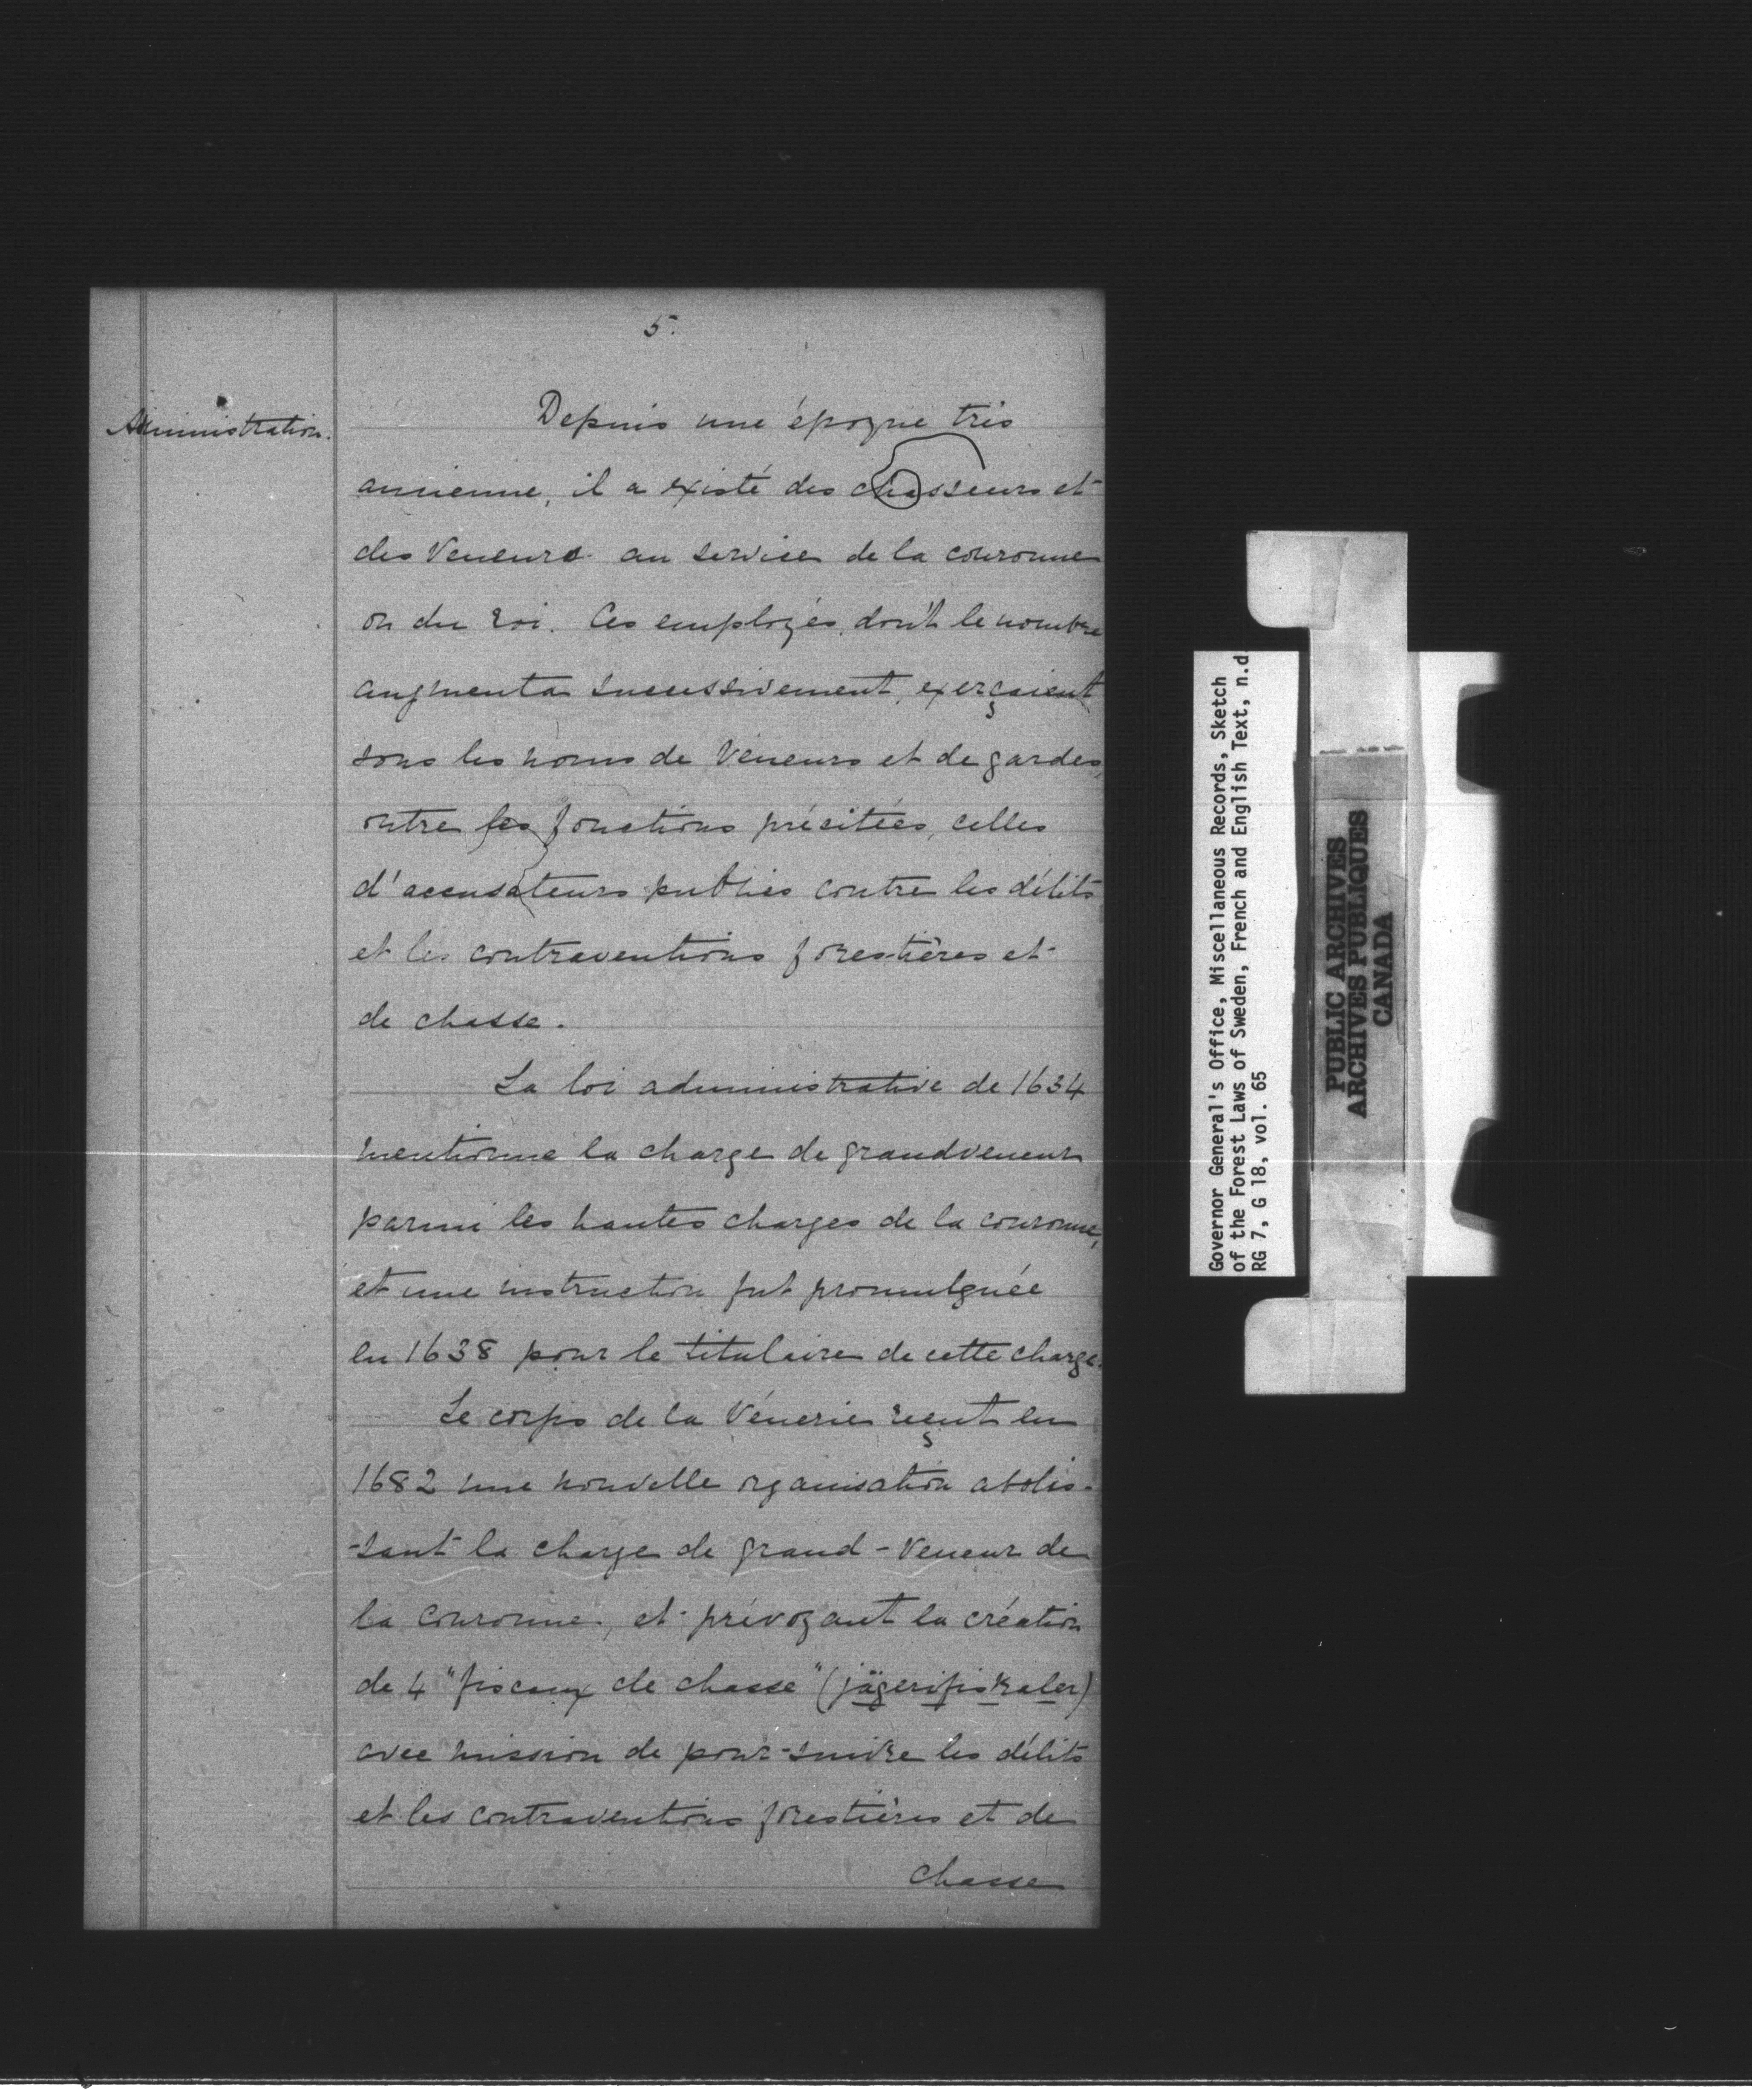 5.
Administration.
Depuis une époque très
ancienne, il a existé des chasseurs et
des Veneurs au service de la couronne
ou du roi. Ces employés, dont le nombre
augmenta successivement, exerçaient
sous les noms de Veneurs et de gardes,
outre les fonctions précitées, celles
d'accusateurs publics contre les délits
et les contraventions forestières et
de chasse.
La loi administrative de 1634
mentionne la charge de grandveneur
parmi les hautes charges de la couronne,
et une instruction fut promulguée
en 1638 pour le titulaire de cette charge.
Le corps de la Vénerie reçut en
1682 une nouvelle organisation abolis-
-sant la charge de grand-Veneur de
la Couronne, et prévoyant la création
de 4 "fiscaux de chasse" (jägerifiskaler)
avec mission de pour-suivre les délits
et les contraventions forestières et de
chasse
Governor General's Office, Miscellaneous Records, Sketch
of the Forest Laws of Sweden, French and English Text, n.d
RG 7, G 18, vol. 65
PUBLIC ARCHIVES
ARCHIVES PUBLIQUES
CANADA